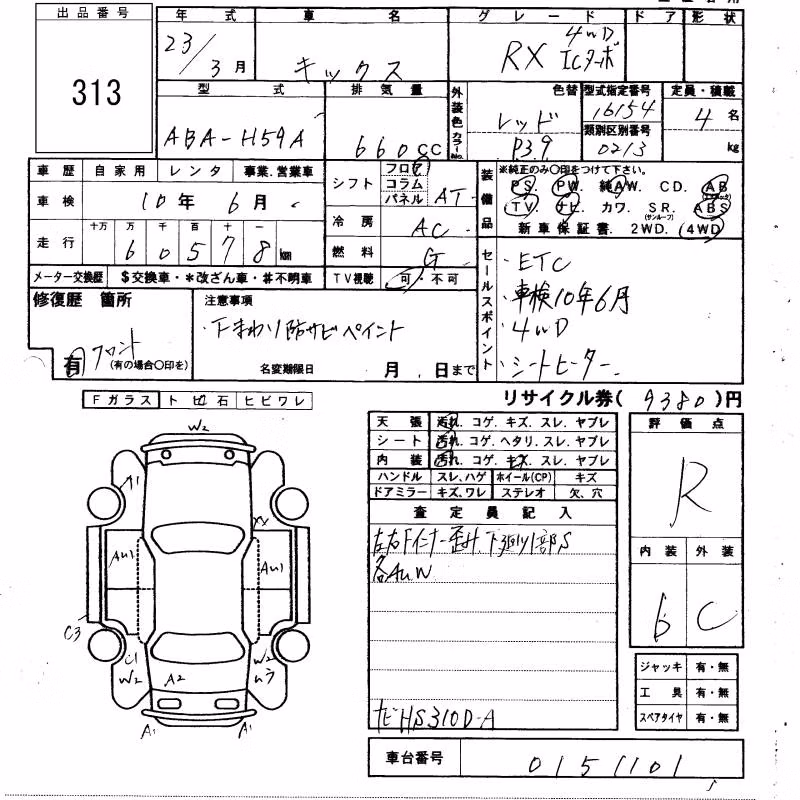 出品番号
313
年式
23/3月
車名
キックス
グレード
4WD
RX ICターボ
ドア
形状
型式
ABA-H59A
排気量
660cc
外装色
色替
レッド
カラーNo.
P39
型式指定番号
16154
類別区別番号
0213
定員・積載
4名
kg
車歴 自家用 レンタ 事業.営業車
車検 10年6月
走行 十万 万 千 百 十 一
60578km
シフト フロア コラム パネル AT
冷房 AC
燃料 G
TV視聴 可・不可
装備品
※純正のみ〇印をつけて下さい。
PS. PW. 純AW. CD. AB
(エアバック)
TV. ナビ. カワ. SR. ABS
(サンルーフ)
新車保証書. 2WD. 4WD
メーター交換歴 $交換車・*改ざん車・#不明車
修復歴 箇所
有 フロント
(有の場合〇印を)
注意事項
・下まわり防サビペイント
名変期限日 月 日まで
セールスポイント
・ETC
・車検10年6月
・4WD
・シートヒーター
リサイクル券( 9380 )円
Fガラス トビ石 ヒビワレ
天張 汚れ. コゲ. キズ. スレ. ヤブレ
シート 汚れ. コゲ. ヘタリ. スレ. ヤブレ
内装 汚れ. コゲ. キズ. スレ. ヤブレ
ハンドル スレ、ハゲ ホイール(CP) キズ
ドアミラー キズ、ワレ ステレオ 欠、穴
評価点
R
内装 外装
6 C
査定員記入
左右Fインナー歪み. 下廻り1部S
各AUW
ナビHS310D-A
W2
A1
XX
AU1
AU1
C3
C1
W2
A2
W2
ムラ
A1
A1
ジャッキ 有・無
工具 有・無
スペアタイヤ 有・無
車台番号
0151101